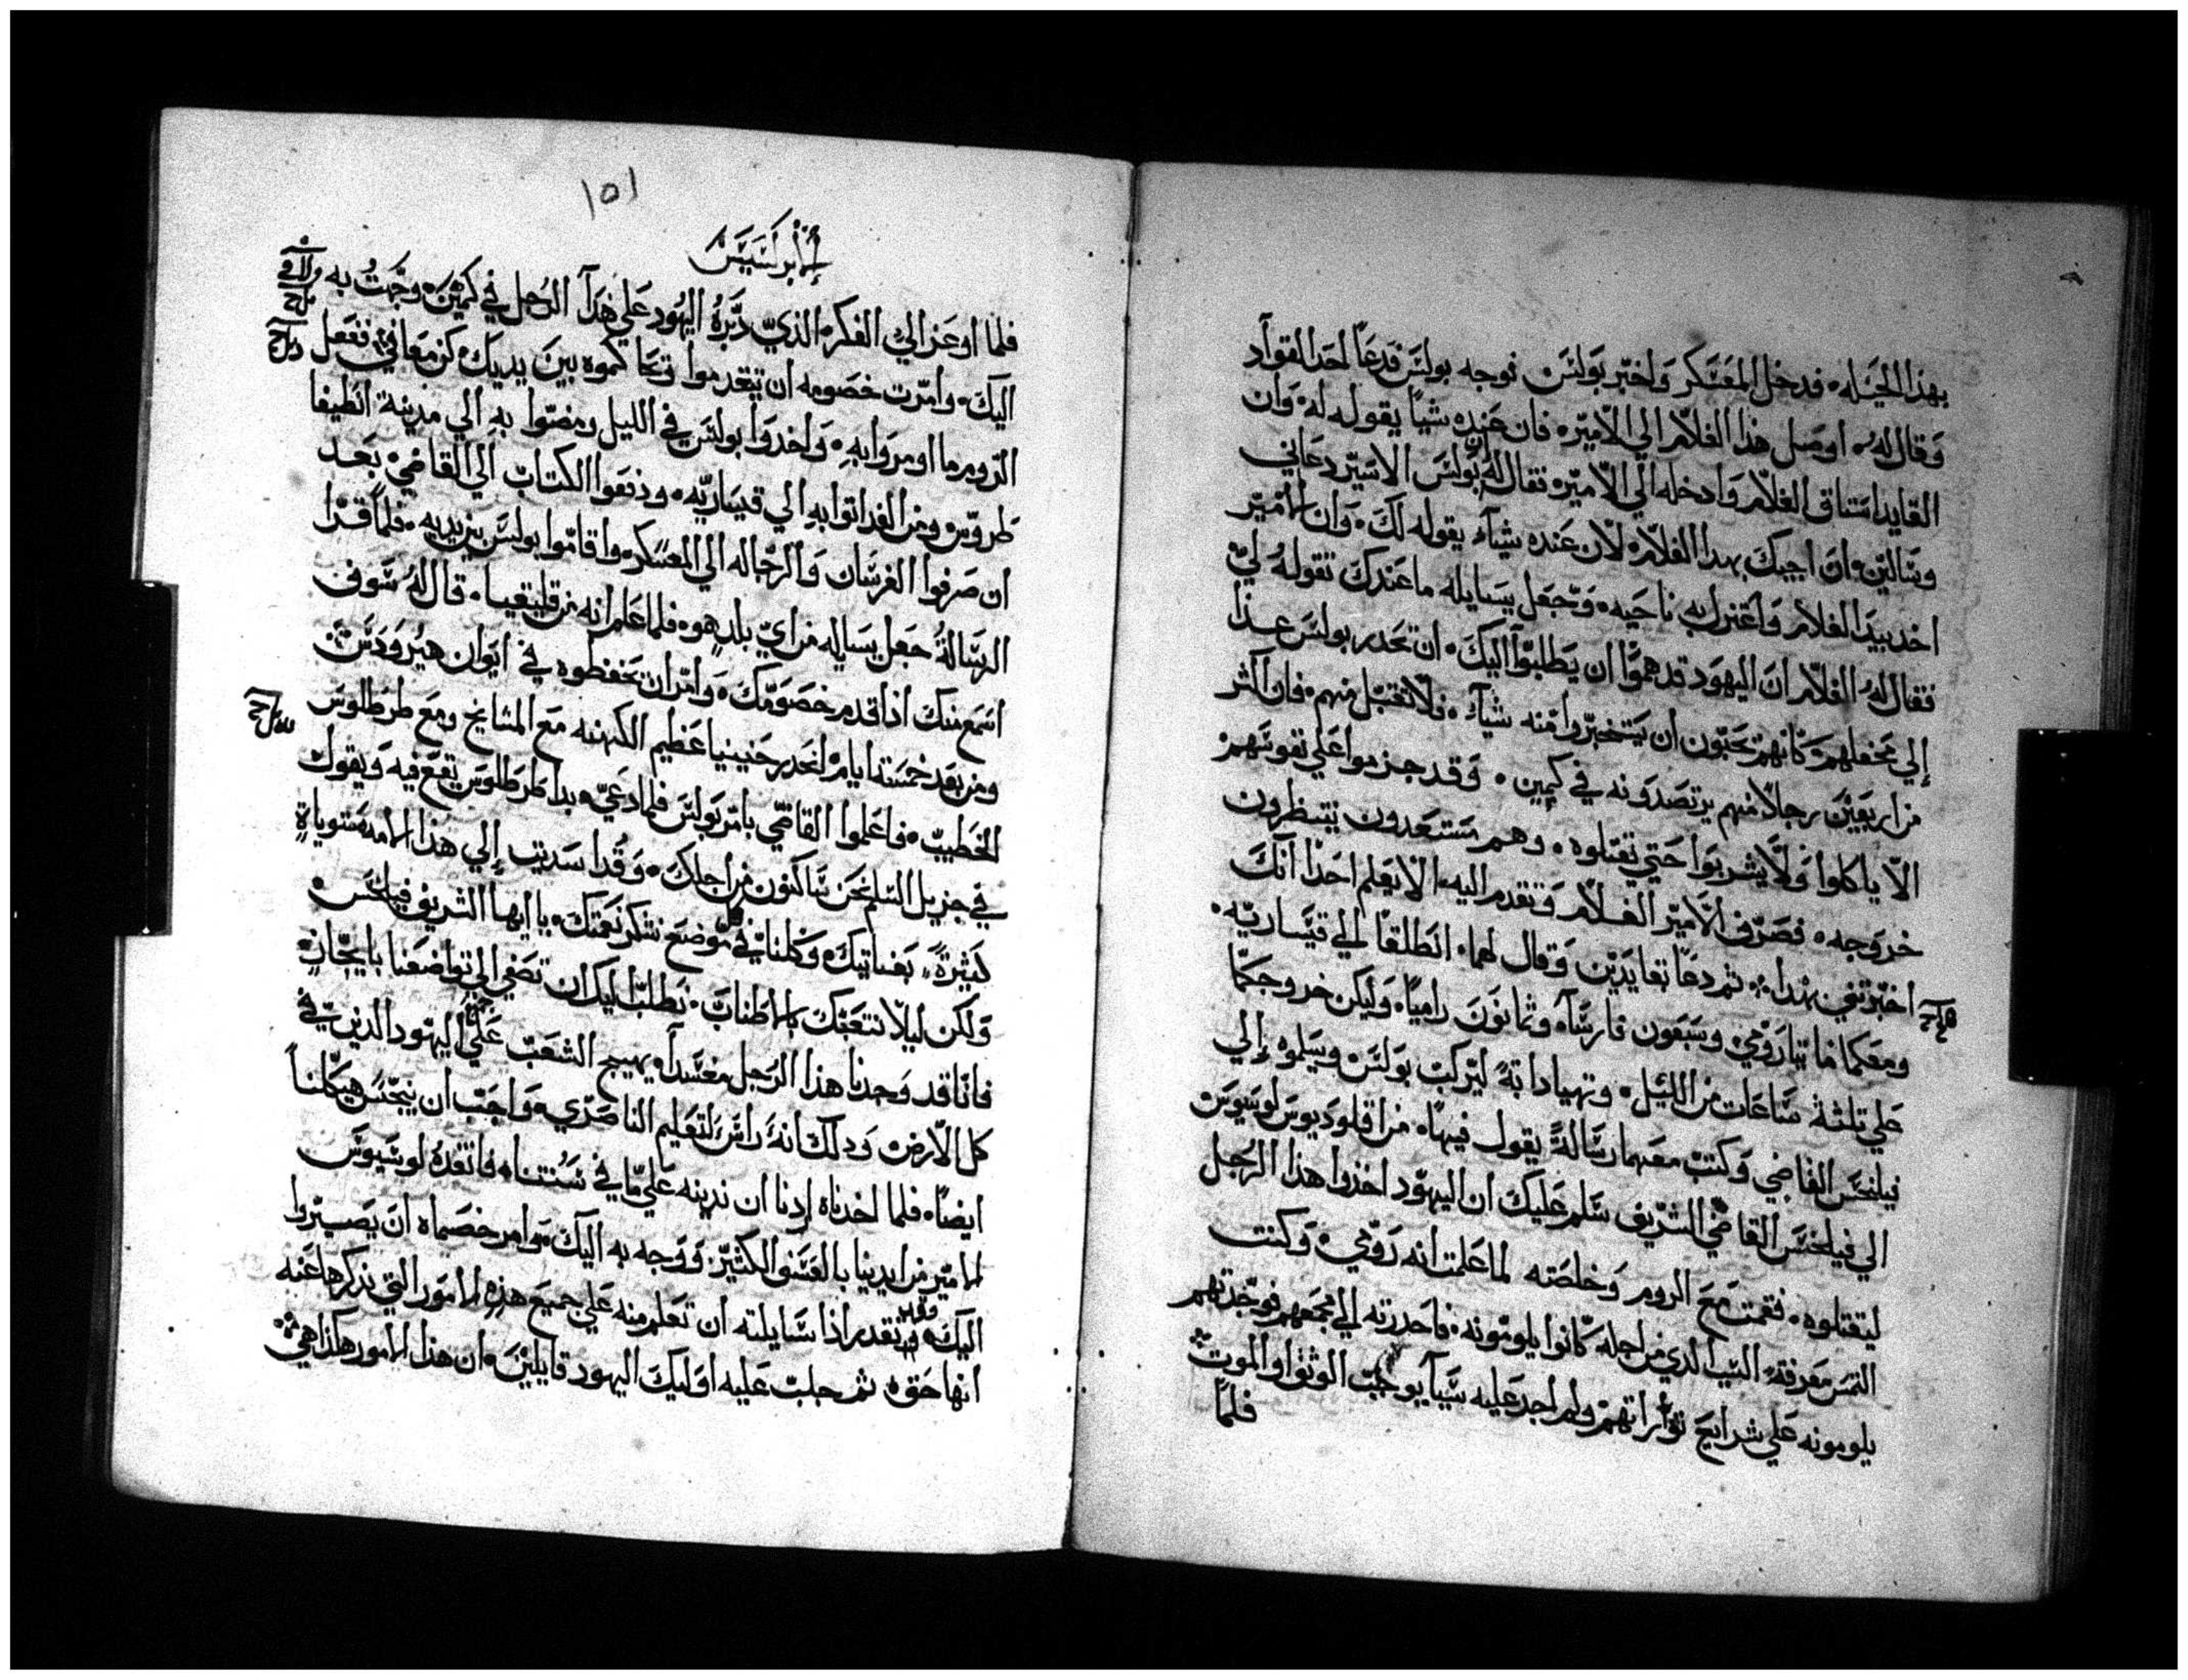 بهذا الحيله. فدخل المعسكر واخبر بولس. فوجه بولس فدعا احد القواد
وقال له. اوصل هذا الغلام الي الامير. فان عنده شيا يقوله له. وان
القايد استاق الغلام وادخله الي الامير. فقال له ان بولس الاسير دعاني
وسالني. ان اجيك بهدا الغلام. لان عنده شيآ يقوله لك. وان الامير
اخد بيد الغلام واعتزل به ناحيه. وجعل يسايله ما عندك تقوله لي
فقال له الغلام ان اليهود قد هموا ان يطلبوا اليك. ان تحدر بولس غدا
إلي محفلهم. كانهم يحبون أن يستخبروا منه شيآ. فلا تقبل منهم. فان اكثر
من اربعين رجلا منهم يرتصدونه في كمين. وقد جزموا علي نفوسهم
الا ياكلوا ولا يشربوا حتي تقتلوه. وهم مستعدون ينتظرون
خروجه. فصرف الامير الغلام وتقدم اليه. الا يعلم احدا انك
اخبرتني بهدا. ثم دعا بقايدين وقال لهما. انطلقا الي قيساريه.
ومعكما مايتا رومي وسبعون فارسآ. وثمانون راميا. وليكن خروجكما
علي ثلثة ساعات من الليل. وتهيا دابة ليركب بولس. وسلموه إلي
فيلخس القاضي وكتب معهما رسالة يقول فيها. من اقلوديوس لوسيوس
الي فيلخس القاضي الشريف سلم عليك ان اليهود اخذوا هذا الرجل
ليقتلوه. فقمت مع الروم وخلصته لما علمت انه رومي. وكنت
التمس معرفة السبب الدي من اجله كانوا يلومونه. فاحدرته الي مجمعهم فوجدتهم
يلومونه علي شرايع توراتهم. ولم اجد عليه شيآ يوجب الوثق او الموت
فلما
١٥١
الابركسيس
فلما اوعز الي الفكر. الذي دبره اليهود علي هدآ الرجل في كمين. وجهت به
اليك. وامرت خصومه ان يتقدموا وتحاكموه بين يديك. كن معافي. ففعل
الروم ما اومروا به. واخدوا بولس في الليل ومضوا به الي مدينة انطيفا
طروس. ومن الغد اتوا به الي قيساريه. ودفعوا الكتاب الي القاضي. بعد
ان صرفوا الفرسان والرجاله الي المعسكر. واقاموا بولس بين يديه. فلما قرا
الرسالة جعل يسايله من اي بلد هو. فلما علم انه من قليقيا. قال له سوف
اسمع منك اذا قدم خصومك. وامر ان تحفظوه في ايوان هيرودس.
ومن بعد خمسة ايام. انحدر حنينيا عظيم الكهنه مع المشايخ ومع طرطلوس
الخطيب. فاعلموا القاضي بامر بولس فلما دعي. بدا طرطلوس يقع فيه ويقول
في جزيل السلم نحن ساكنون من اجلك. وقد اسديت إلي هذا الامه مستوياة
كثيرة. بعنايتك وكلنا في كل موضع نشكر نعمتك. يا ايها الشريف فيلخس
ولكن ليلا نتعبك بالاطناب. نطلب اليك ان تصغي الي تواضعنا بايجاز
فانا قد وجدنا هذا الرجل مفسدآ. يهيج الشعب علي اليهود الذين في
كل الارض. ودلك انه راس لتعليم الناصري. واحب ان ينجس هيكلنا
ايضا. فلما اخدناه اردنا ان ندينه علي ما في سنتنا. فانقده لوسيوس
الامير من ايدينا بالعسف الكثير. ووجه به اليك. وامر خصماه ان يصيروا
اليك. وقد تقدر اذا سايلته ان تعلم منه علي جميع هذه الامور التي ندكرها عنه
انها حق. ثم جلب عليه اوليك اليهود قايلين. ان هذا الامور هكذا هي.